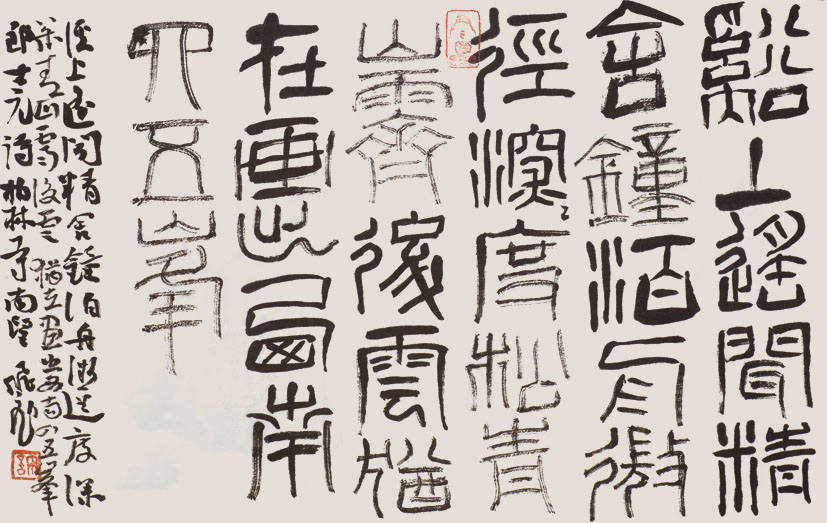 谿上遙聞精
舍鐘泊舟微
徑深度松青
山霽後雲猶
在畫出西南
四五峯
溪上遙聞精舍鐘泊舟微逕度深
松青山霽後雲猶在畫出西南四五峯
郎士元詩柏林寺南望